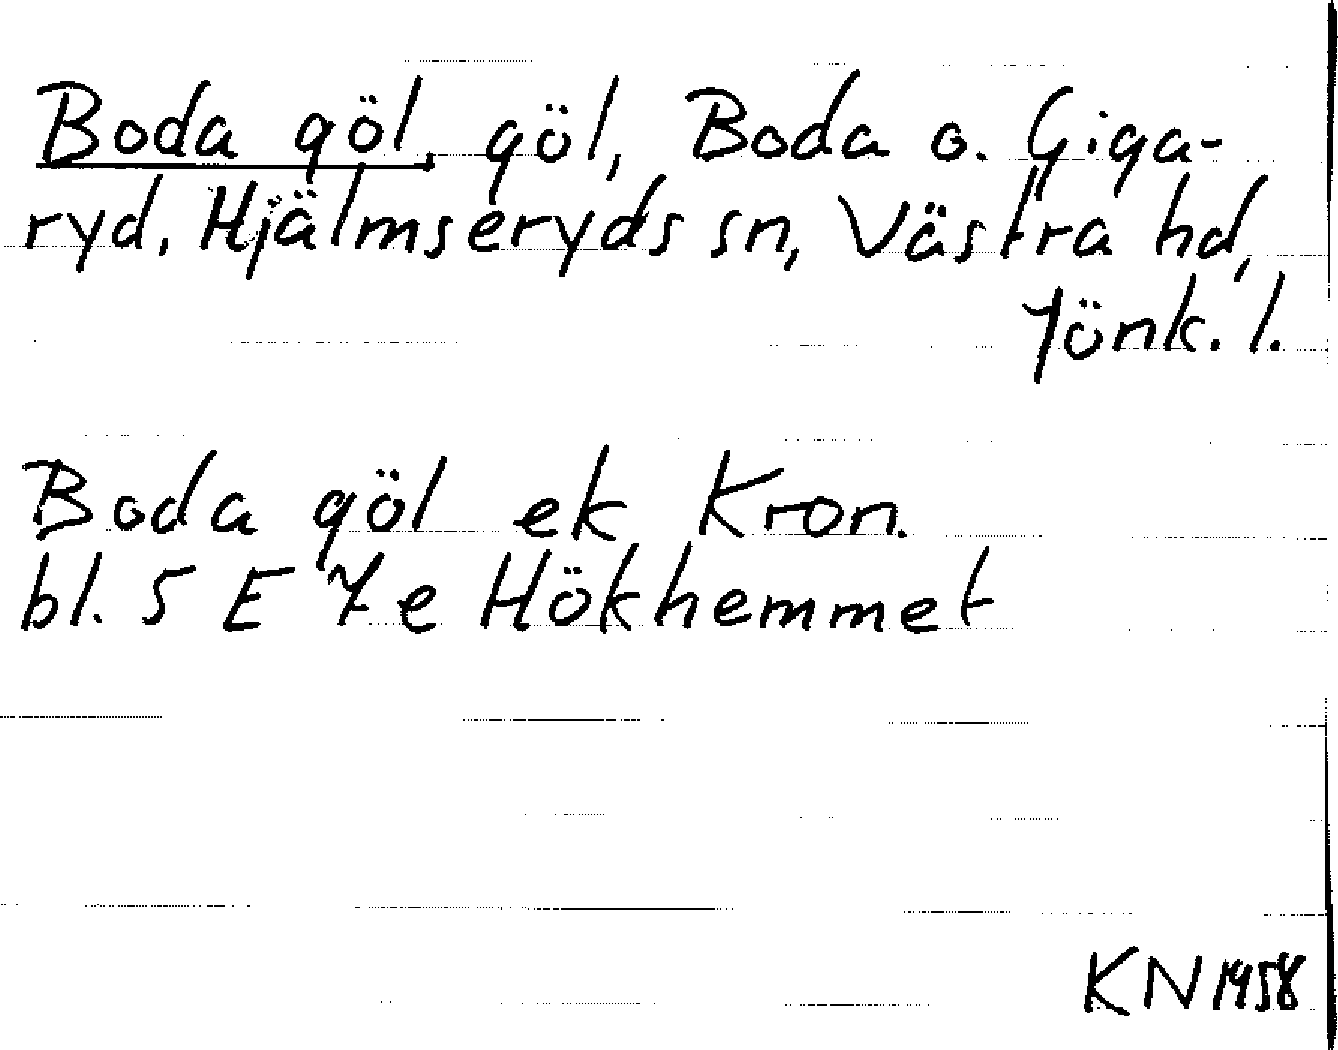 Boda göl, göl, Boda o. Giga-
ryd, Hjälmseryds sn, Västra hd,
Jönk. l.
Boda göl ek Kron.
bl. 5 E 7e Hökhemmet
KN 1958